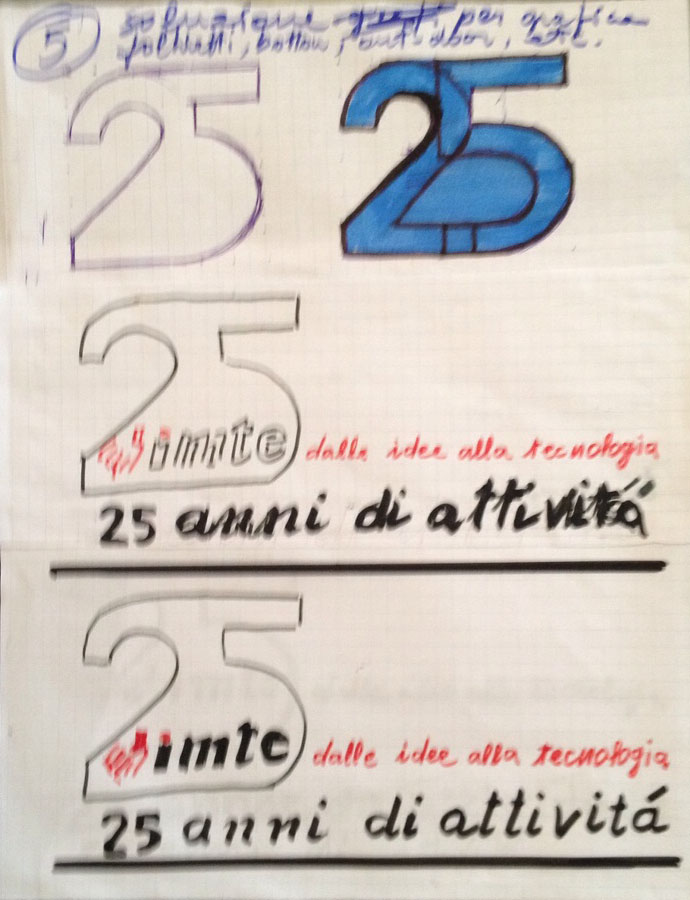 5 soluzione per grafica
25 25
25
imte dalle idee alla tecnologia
25 anni di attivitá
25
imte dalle idee alla tecnologia
25 anni di attivitá